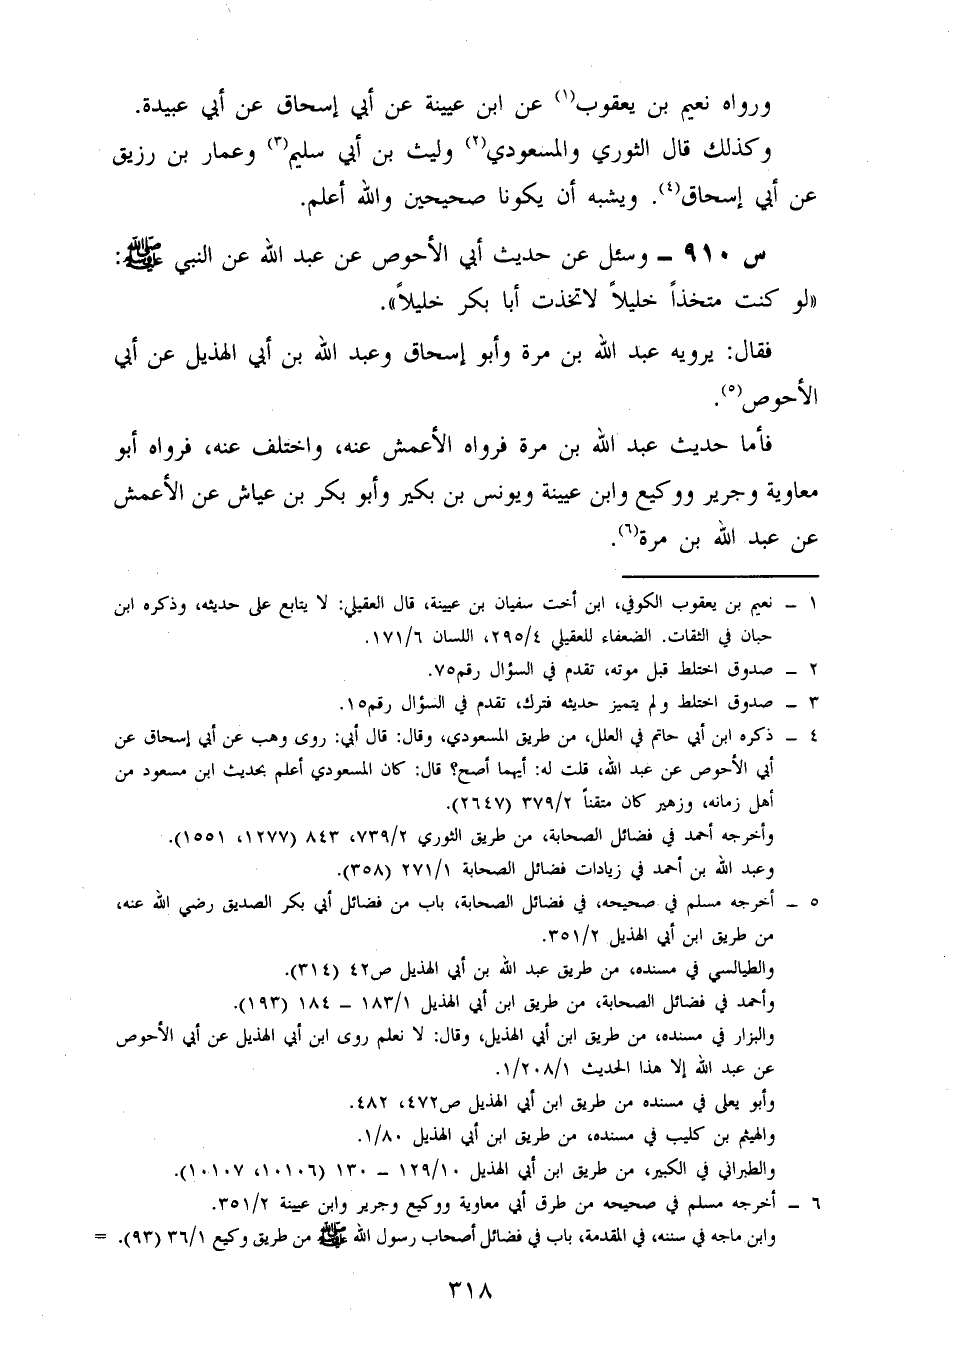 ورواه نعيم بن يعقوب(١) عن ابن عيينة عن أبي إسحاق عن أبي عبيدة.
وكذلك قال الثوري والمسعودي(٢) وليث بن أبي سليم(٣) وعمار بن رزيق
عن أبي إسحاق(٤). ويشبه أن يكونا صحيحين والله أعلم.
س ٩١٠ ـ وسئل عن حديث أبي الأحوص عن عبد الله عن النبي ﷺ:
«لو كنت متخذاً خليلاً لاتخذت أبا بكر خليلاً».
فقال: يرويه عبد الله بن مرة وأبو إسحاق وعبد الله بن أبي الهذيل عن أبي
الأحوص(٥).
فأما حديث عبد الله بن مرة فرواه الأعمش عنه، واختلف عنه، فرواه أبو
معاوية وجرير ووكيع وابن عيينة ويونس بن بكير وأبو بكر بن عياش عن الأعمش
عن عبد الله بن مرة(٦).
١ ـ نعيم بن يعقوب الكوفي، ابن أخت سفيان بن عيينة، قال العقيلي: لا يتابع على حديثه، وذكره ابن
حبان في الثقات. الضعفاء للعقيلي ٢٩٥/٤، اللسان ١٧١/٦.
٢ ـ صدوق اختلط قبل موته، تقدم في السؤال رقم٧٥.
٣ ـ صدوق اختلط ولم يتميز حديثه فترك، تقدم في السؤال رقم١٥.
٤ ـ ذكره ابن أبي حاتم في العلل، من طريق المسعودي، وقال: قال أبي: روى وهب عن أبي إسحاق عن
أبي الأحوص عن عبد الله، قلت له: أيهما أصح؟ قال: كان المسعودي أعلم بحديث ابن مسعود من
أهل زمانه، وزهير كان متقناً ٣٧٩/٢ (٢٦٤٧).
وأخرجه أحمد في فضائل الصحابة، من طريق الثوري ٧٣٩/٢، ٨٤٣ (١٢٧٧، ١٥٥١).
وعبد الله بن أحمد في زيادات فضائل الصحابة ٢٧١/١ (٣٥٨).
٥ ـ أخرجه مسلم في صحيحه، في فضائل الصحابة، باب من فضائل أبي بكر الصديق رضي الله عنه،
من طريق ابن أبي الهذيل ٣٥١/٢.
والطيالسي في مسنده، من طريق عبد الله بن أبي الهذيل ص٤٢ (٣١٤).
وأحمد في فضائل الصحابة، من طريق ابن أبي الهذيل ١٨٣/١ ـ ١٨٤ (١٩٣).
والبزار في مسنده، من طريق ابن أبي الهذيل، وقال: لا نعلم روى ابن أبي الهذيل عن أبي الأحوص
عن عبد الله إلا هذا الحديث ١/٢٠٨/١.
وأبو يعلى في مسنده من طريق ابن أبي الهذيل ص٤٧٢، ٤٨٢.
والهيثم بن كليب في مسنده، من طريق ابن أبي الهذيل ١/٨٠.
والطبراني في الكبير، من طريق ابن أبي الهذيل ١٢٩/١٠ ـ ١٣٠ (١٠١٠٦، ١٠١٠٧).
٦ ـ أخرجه مسلم في صحيحه من طرق أبي معاوية ووكيع وجرير وابن عيينة ٣٥١/٢.
وابن ماجه في سننه، في المقدمة، باب في فضائل أصحاب رسول الله ﷺ من طريق وكيع ٣٦/١ (٩٣). =
٣١٨